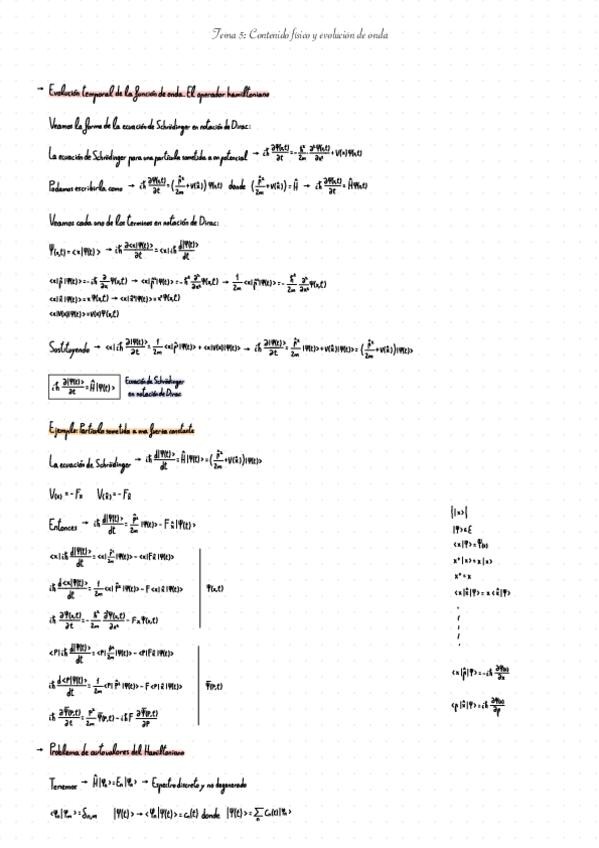 Tema 5: Contenido físico y evolución de onda
→ Evolución temporal de la función de onda. El operador hamiltoniano
Veamos la forma de la ecuación de Schrödinger en notación de Dirac:
La ecuación de Schrödinger para una partícula sometida a un potencial → iħ ∂Ψ(x,t)/∂t = -ħ²/2m ∂²Ψ(x,t)/∂x² + V(x)Ψ(x,t)
Podemos escribirla como → iħ ∂Ψ(x,t)/∂t = (p̂²/2m + V(x̂)) Ψ(x,t) donde (p̂²/2m + V(x̂)) = Ĥ → iħ ∂Ψ(x,t)/∂t = ĤΨ(x,t)
Veamos cada uno de los terminos en notación de Dirac:
Ψ(x,t) = <x|Ψ(t)> → iħ ∂<x|Ψ(t)>/∂t = <x|iħ d|Ψ(t)>/dt
<x|p̂|Ψ(t)> = -iħ ∂/∂x Ψ(x,t) → <x|p̂²|Ψ(t)> = -ħ² ∂²/∂x² Ψ(x,t) → 1/2m <x|p̂²|Ψ(t)> = -ħ²/2m ∂²/∂x² Ψ(x,t)
<x|x̂|Ψ(t)> = xΨ(x,t) → <x|x̂²|Ψ(t)> = x²Ψ(x,t)
<x|V(x̂)|Ψ(t)> = V(x)Ψ(x,t)
Sustituyendo → <x|iħ ∂|Ψ(t)>/∂t = 1/2m <x|p̂²|Ψ(t)> + <x|V(x̂)|Ψ(t)> → iħ ∂|Ψ(t)>/∂t = p̂²/2m |Ψ(t)> + V(x̂)|Ψ(t)> = (p̂²/2m + V(x̂))|Ψ(t)>
iħ ∂|Ψ(t)>/∂t = Ĥ|Ψ(t)> Ecuación de Schrödinger
en notación de Dirac
Ejemplo: Partícula sometida a una fuerza constante
La ecuación de Schrödinger → iħ d|Ψ(t)>/dt = Ĥ|Ψ(t)> = (p̂²/2m + V(x̂))|Ψ(t)>
V(x) = -Fx V(x̂) = -Fx̂
Entonces → iħ d|Ψ(t)>/dt = p̂²/2m |Ψ(t)> - Fx̂|Ψ(t)>
<x|iħ d|Ψ(t)>/dt = <x|p̂²/2m|Ψ(t)> - <x|Fx̂|Ψ(t)>
iħ d<x|Ψ(t)>/dt = 1/2m <x|p̂²|Ψ(t)> - F<x|x̂|Ψ(t)> Ψ(x,t)
iħ ∂Ψ(x,t)/∂t = -ħ²/2m ∂²Ψ(x,t)/∂x² - FxΨ(x,t)
<p|iħ d|Ψ(t)>/dt = <p|p̂²/2m|Ψ(t)> - <p|Fx̂|Ψ(t)>
iħ d<p|Ψ(t)>/dt = 1/2m <p|p̂²|Ψ(t)> - F<p|x̂|Ψ(t)> Ψ̄(p,t)
iħ ∂Ψ̄(p,t)/∂t = p²/2m Ψ̄(p,t) - iħF ∂Ψ̄(p,t)/∂p
{|x>}
|Ψ> ∈ ξ
<x|Ψ> = Ψ(x)
x̂|x> = x|x>
x̂⁺ = x̂
<x|x̂|Ψ> = x<x|Ψ>
<x|p̂|Ψ> = -iħ ∂Ψ(x)/∂x
<p|x̂|Ψ> = iħ ∂Ψ̄(p)/∂p
→ Problema de autovalores del Hamiltoniano
Tenemos → Ĥ|φₙ> = Eₙ|φₙ> → Espectro discreto y no degenerado
<φₙ|φₘ> = δₙ,ₘ |Ψ(t)> → <φₙ|Ψ(t)> = cₙ(t) donde |Ψ(t)> = ∑ₙ cₙ(t)|φₙ>